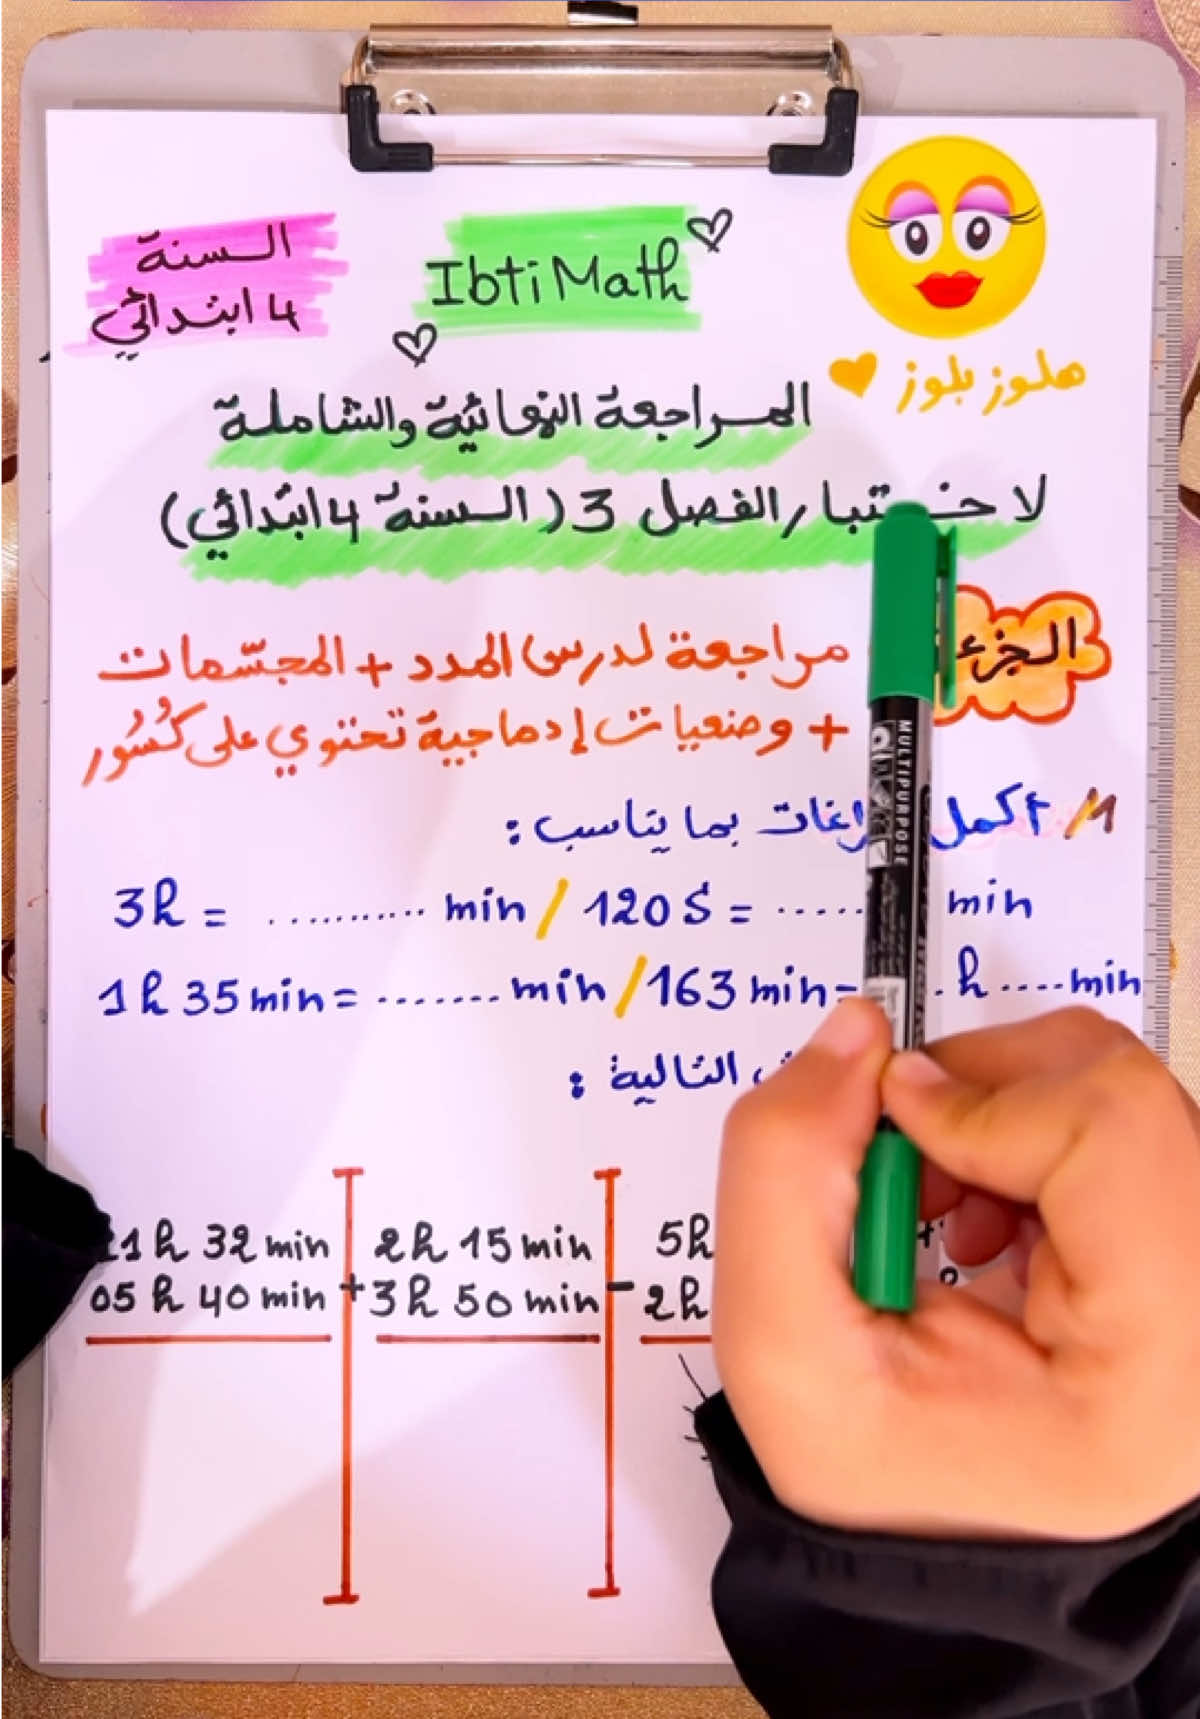 السنة
4 ابتدائي
IbtiMath
هلوز بلوز
المراجعة النهائية والشاملة
لاختبار الفصل 3 (السنة 4 ابتدائي)
مراجعة لدرس المدد + المجسّمات
+ وضعيات إدماجية تحتوي على كُسُور
1/ أكمل بما يناسب :
3h = ........... min / 120 s = ..... min
1h 35 min = ....... min / 163 min = . h .... min
التالية :
h 32 min
05 h 40 min
2h 15 min
+ 3h 50 min
5h
- 2h
MULTIPURPOSE